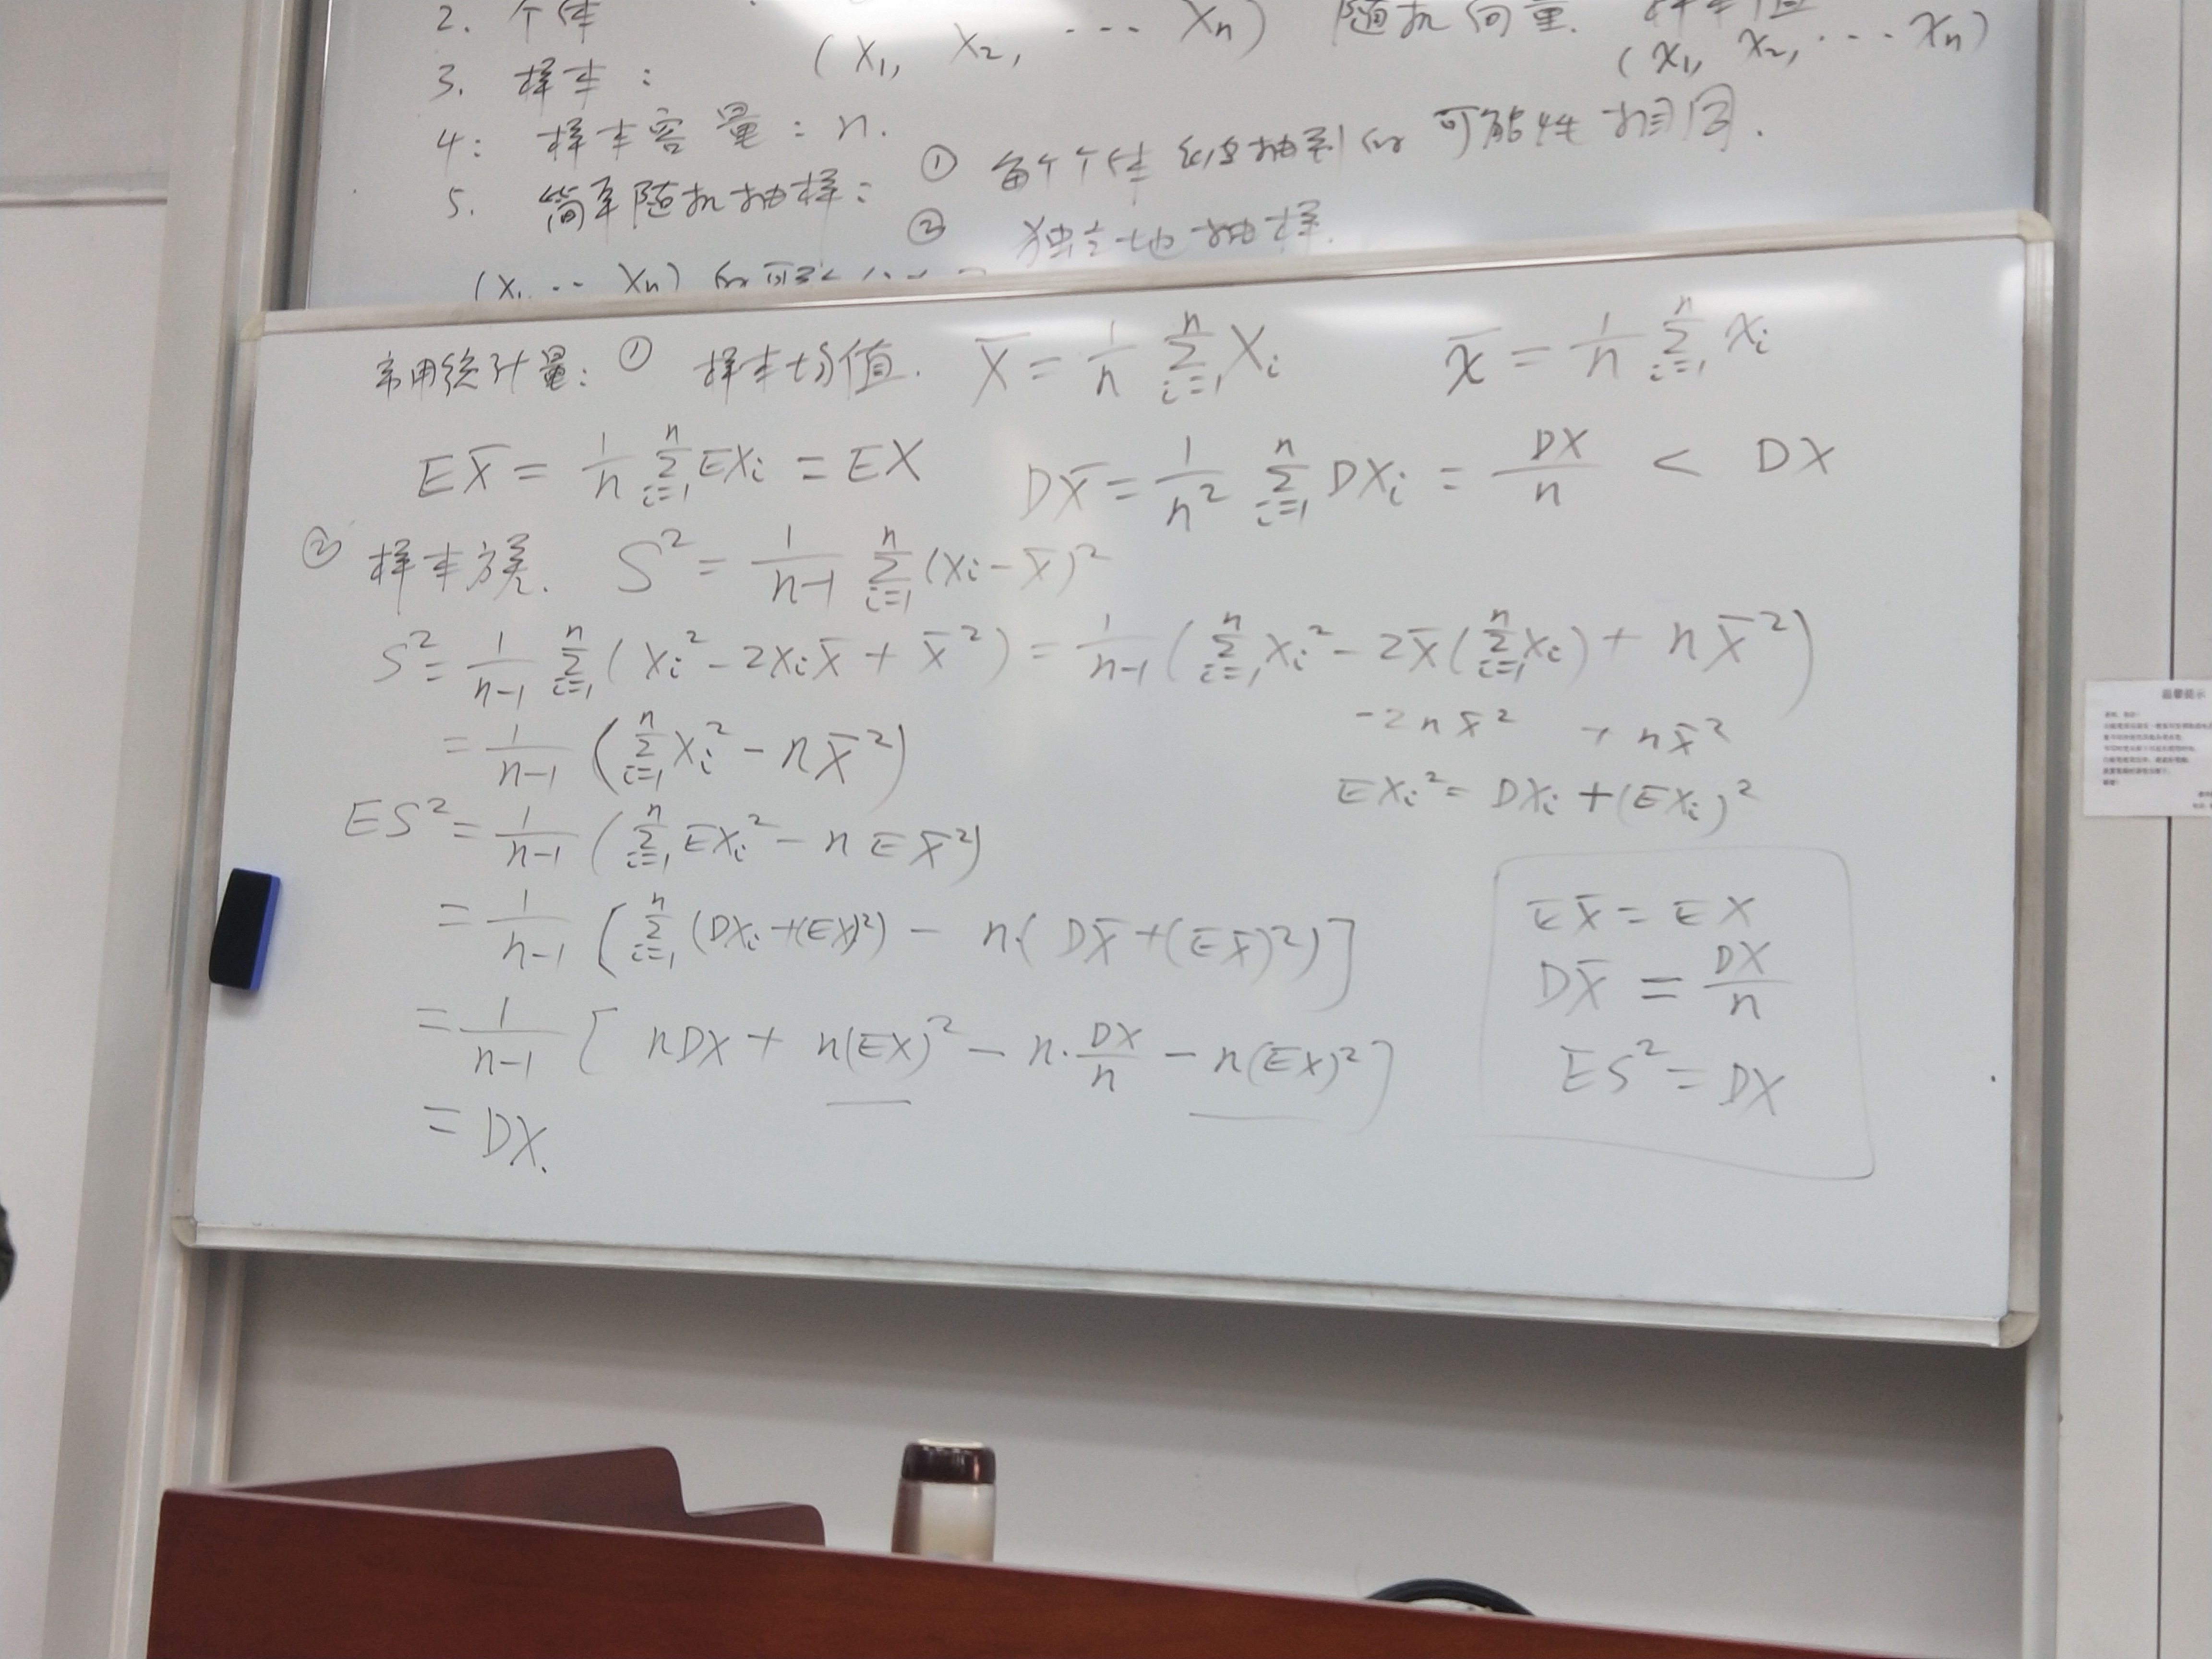 2. 个体
(X₁, X₂, ··· Xₙ) 随机向量. 样本值
3. 样本: (x₁, x₂, ··· xₙ)
4: 样本容量: n.
5. 简单随机抽样: ① 每个个体被抽到的可能性相同.
② 独立地抽样.
(X₁ ·· Xₙ) 的可
常用统计量: ① 样本均值. X̄ = 1/n Σᵢ₌₁ⁿ Xᵢ x̄ = 1/n Σᵢ₌₁ⁿ xᵢ
EX̄ = 1/n Σᵢ₌₁ⁿ EXᵢ = EX DX̄ = 1/n² Σᵢ₌₁ⁿ DXᵢ = DX/n < DX
② 样本方差. S² = 1/(n-1) Σᵢ₌₁ⁿ (Xᵢ - X̄)²
S² = 1/(n-1) Σᵢ₌₁ⁿ (Xᵢ² - 2XᵢX̄ + X̄²) = 1/(n-1) (Σᵢ₌₁ⁿ Xᵢ² - 2X̄(Σᵢ₌₁ⁿ Xᵢ) + nX̄²)
-2nX̄² + nX̄²
= 1/(n-1) (Σᵢ₌₁ⁿ Xᵢ² - nX̄²)
EXᵢ² = DXᵢ + (EXᵢ)²
ES² = 1/(n-1) (Σᵢ₌₁ⁿ EXᵢ² - nEX̄²)
= 1/(n-1) [Σᵢ₌₁ⁿ (DXᵢ + (EX)²) - n·(DX̄ + (EX̄)²)]
= 1/(n-1) [nDX + n(EX)² - n·DX/n - n(EX)²]
= DX.
EX̄ = EX
DX̄ = DX/n
ES² = DX
温馨提示